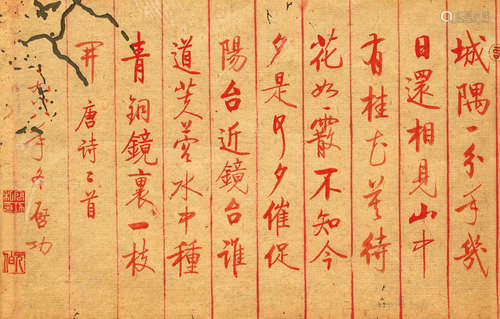 城隅一分手幾
日還相見山中
有桂花莫待
花如霰不知今
夕是何夕催促
陽台近鏡台誰
道芙蓉水中種
青銅鏡裏一枝
開 唐詩二首
年冬 啓功